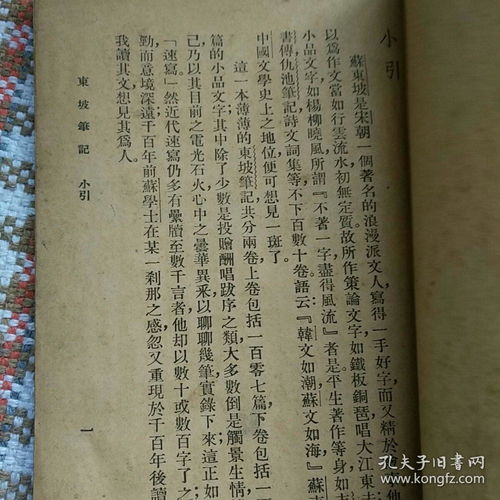 小引
蘇東坡是宋朝一個著名的浪漫派文人,寫得一手好字,而又精於
以爲作文當如行雲流水,初無定質。故所作策論文字,如鐵板銅琶,唱大江東
小品文字,如楊柳曉風,所謂『不著一字,盡得風流』者是。平生著作等身,如
書傳仇池筆記詩文詞集等,不下百數十卷。語云:『韓文如潮,蘇文如海』蘇
中國文學史上之地位,便可想見一斑了。
這一本薄薄的東坡筆記,共分兩卷,上卷包括一百零七篇,下卷包括一
篇的小品文字;其中除了少數是投贈酬唱跋序之類,大多數倒是觸景生情,
己乃以其目前之電光石火,心中之曇華異釆,以聊聊幾筆,實錄下來;這正如
「速寫」然。近代速寫仍多有纍牘至數千言者,他却以數十或數百字了之
勤而意境深遠;千百年前蘇學士在某一刹那之感忽又重現於千百年後讀
我讀其文,想見其爲人。
東坡筆記 小引
一
孔夫子旧书网
www.kongfz.com